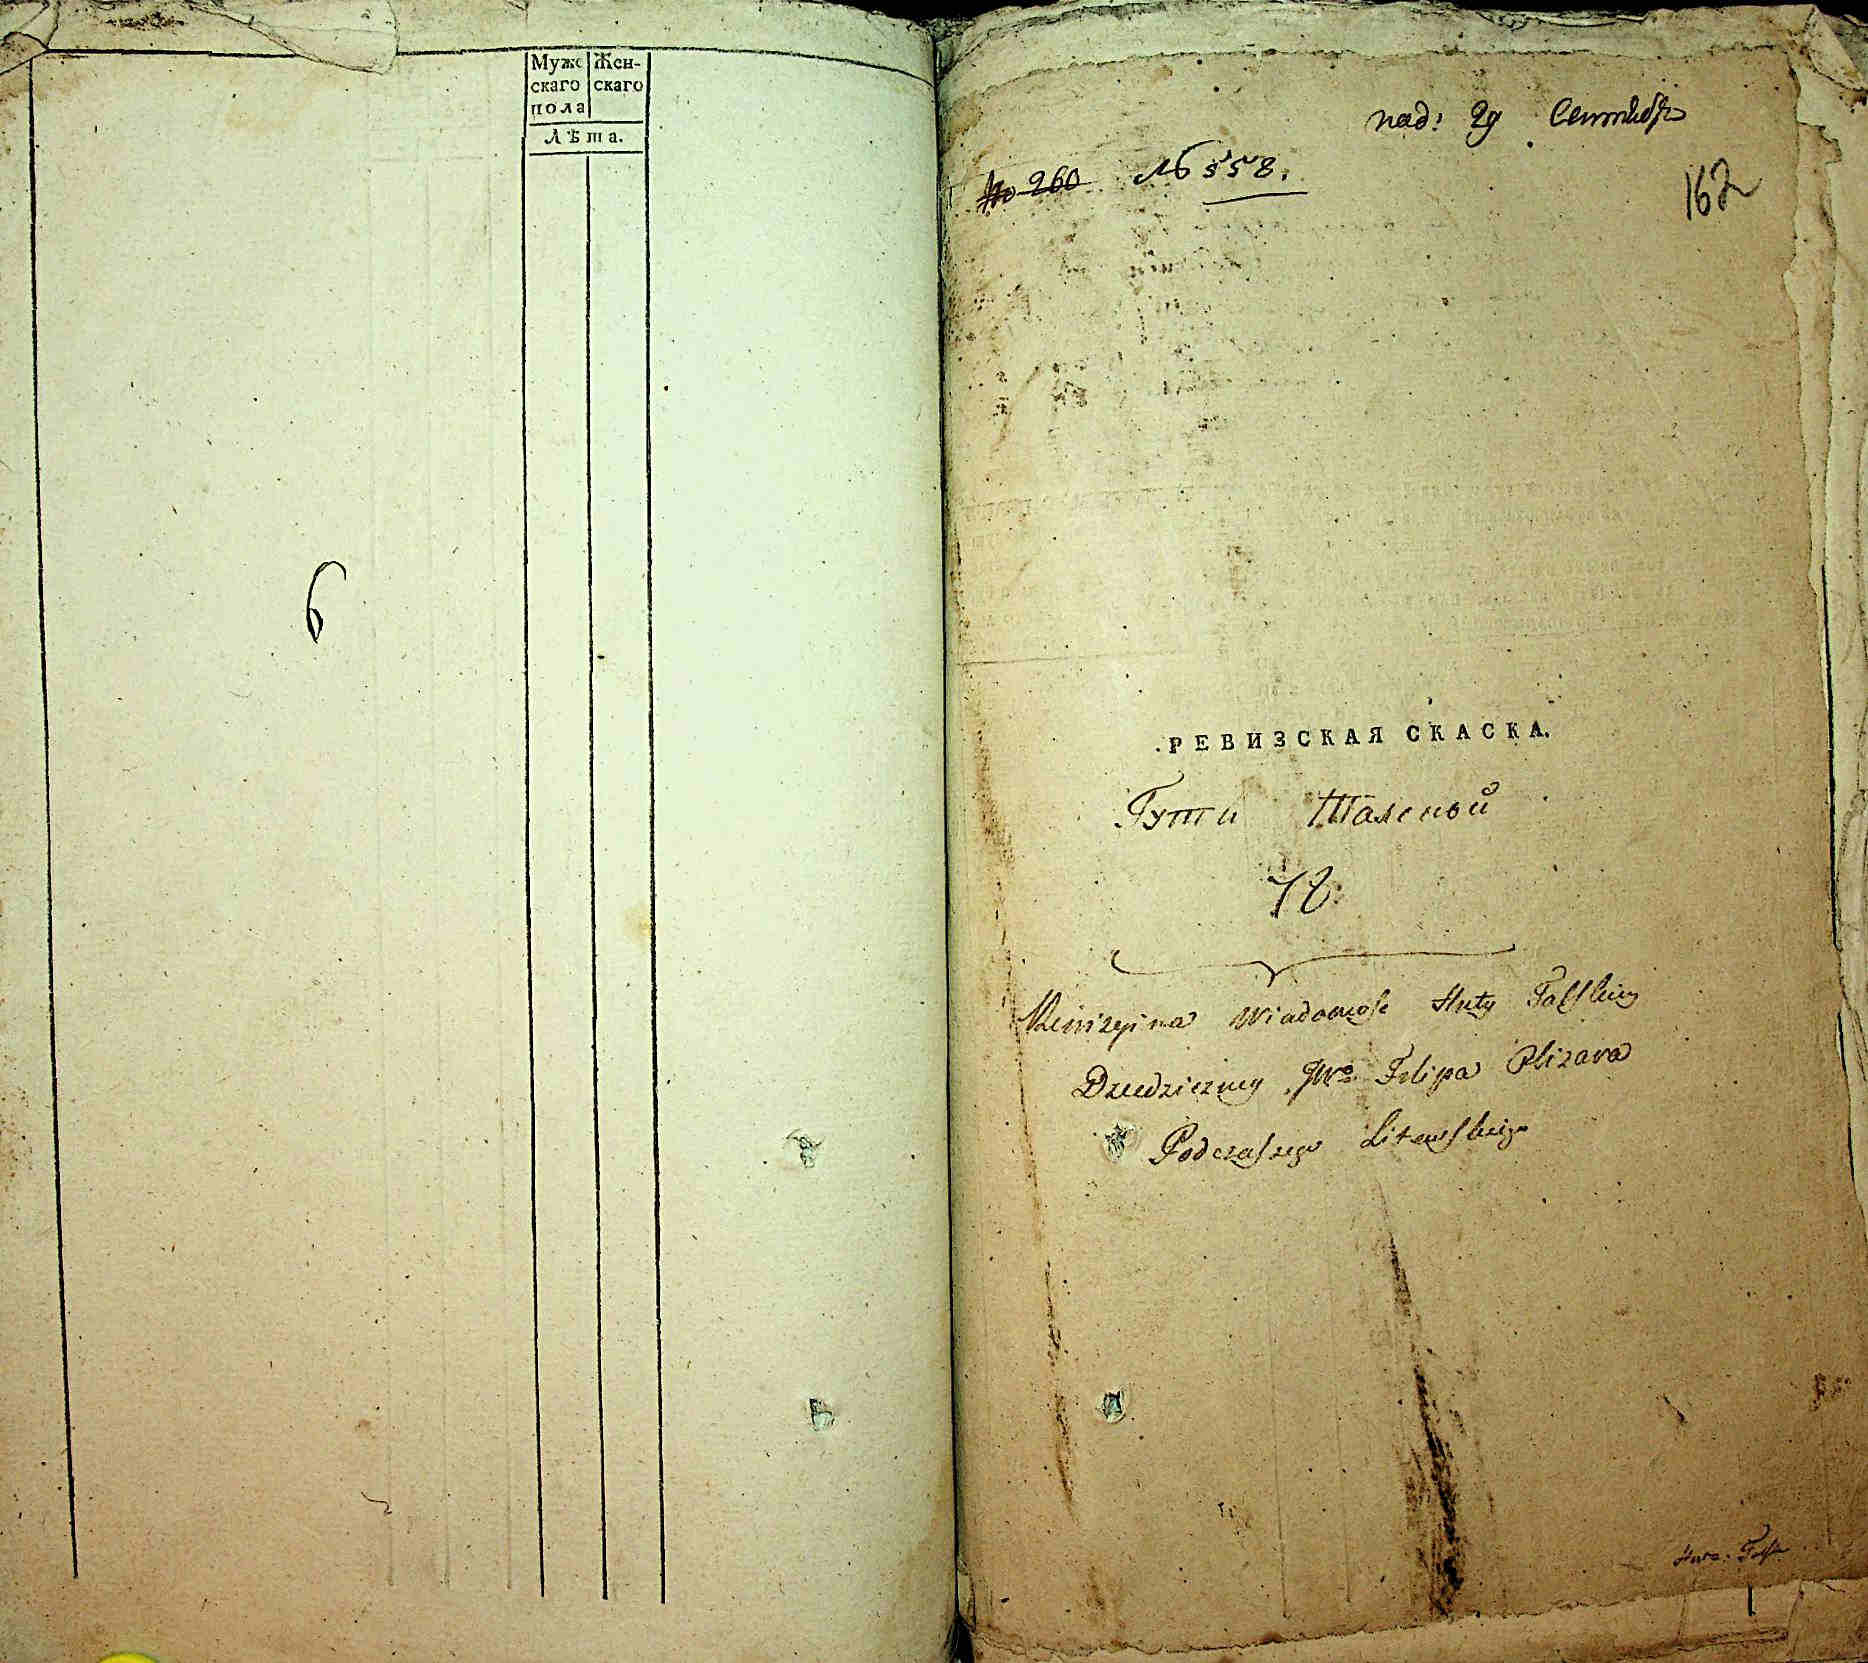 Муже Жен-
скаго скаго
пола
Лѣта.
6
под: 29 Сентября
№ 260 № 558.
162
РЕВИЗСКАЯ СКАСКА.
Гути Талской
78.
Rewizyina Wiadomość Huty Talskiey
Dziedziczney JWo Filipa Olizara
Podczaszego Litewskiego